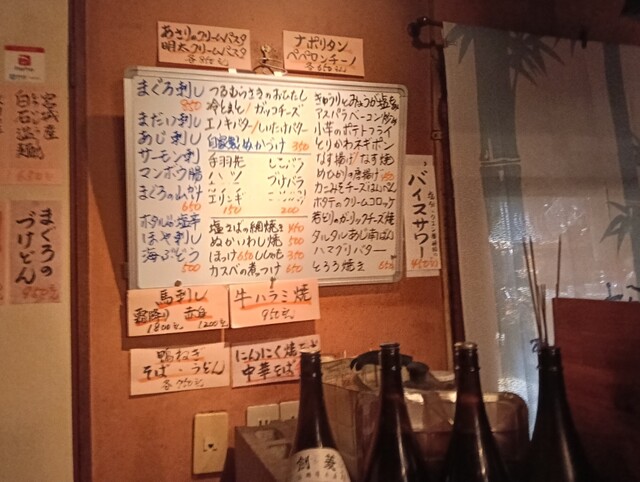 あさりのクリームパスタ
明太クリームパスタ
各950元
ナポリタン
ペペロンチーノ
各850元
宮城産
白石温麺
650元
まぐろの
づけどん
950元
まぐろ刺し
850
まだい刺し
あじ刺し
サーモン刺
マンボウ腸
まぐろの山かけ
650
ホタルいか塩辛
ほや刺し
海ぶどう
500
つるむらさきのおひたし
冷とまと/ガッコチーズ
エノキバター/しいたけバター
自家製ぬかづけ 350
手羽先
ハツ
エリンギ
150
つくばラ
200
塩さばの網焼き 450
ぬかいわし焼 500
ほっけ650 ししゃも350
カスベの煮つけ 650
きゅうりとみょうが塩
アスパラベーコン炒め
小芋のポテトフライ
とりわかスギポン
なす揚げ/なす焼
めひかりの唐揚げ
カニみそチーズはんぺん
ポタテのクリームコロッケ
若どりのガリックチーズ焼
タルタルあじ南ばん
ハマグリバター
とろろ焼き 650
バイスサワー
450元
馬刺し
霜降り 赤身
1800元 1200元
牛ハラミ焼
950元
鴨ねぎ
そば・うどん
各750元
にんにく焼
中華そば
創菱